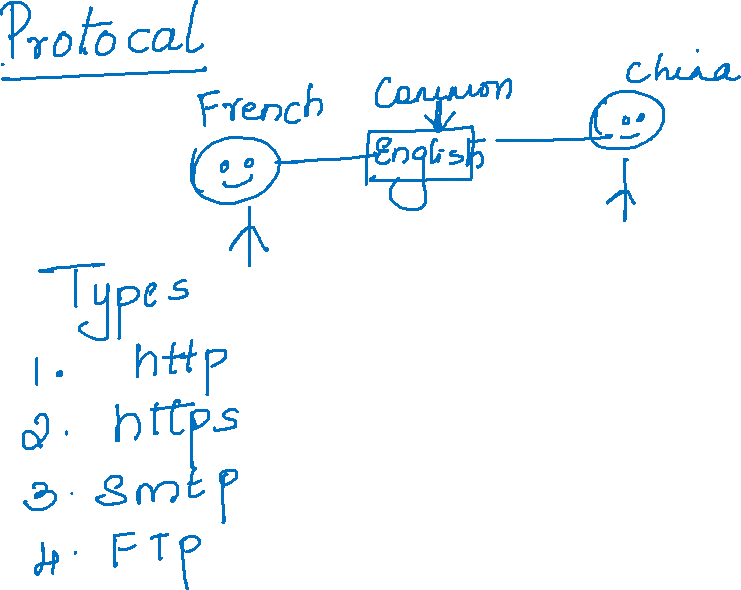 Protocal
French Common China
English
Types
1. http
2. https
3. smtp
4. FTP